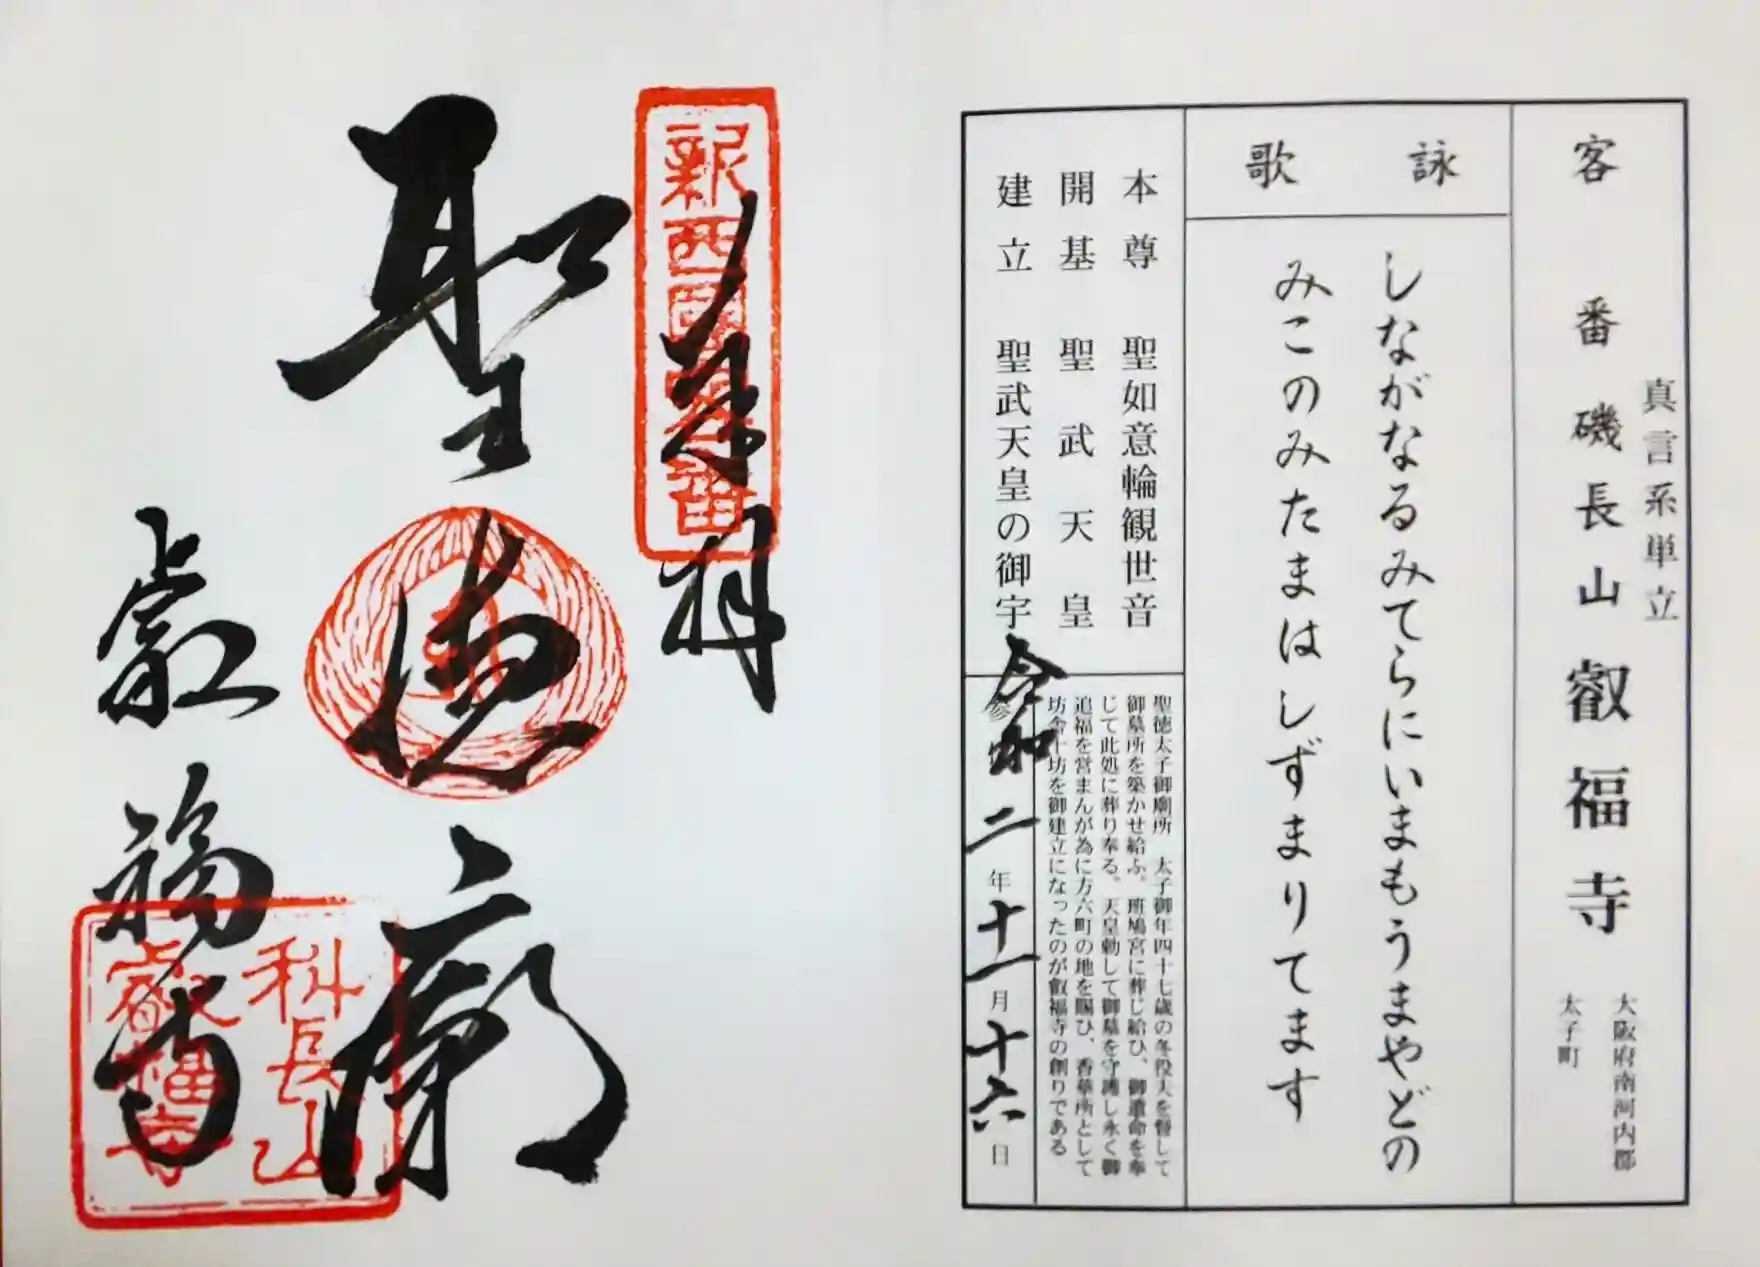 客番 磯長山 叡福寺
真言系単立
大阪府南河内郡
太子町
詠歌
しながなるみてらにいまもうまやどの
みこのみたまはしずまりてます
本尊 聖如意輪観世音
開基 聖武天皇
建立 聖武天皇の御宇
聖徳太子御廟所 太子御年四十七歳の冬役夫を督して
御墓所を築かせ給ふ。斑鳩宮に葬じ給ひ、御遺命を奉
じて此処に葬り奉る。天皇勅して御墓を守護し永く御
追福を営まんが為に方六町の地を賜ひ、香華所として
坊舎十坊を御建立になったのが叡福寺の創りである
令和二年十一月十六日
奉拝
新西國客番
聖徳廟
叡福寺
科長山
叡福寺